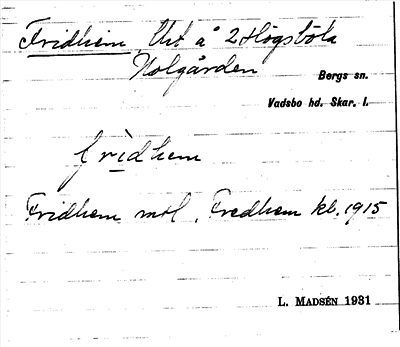 Fridhem, Utt å 2 Högsböla
Nolgården
Bergs sn.
Vadsbo hd. Skar. l.
frìdhem
Fridhem mol, Fredhem kb. 1915
L. MADSÉN 1931